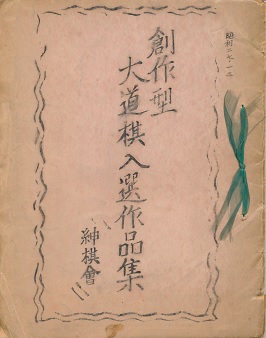 昭和二九・一・二
創作型
大道棋入選作品集
紳棋會